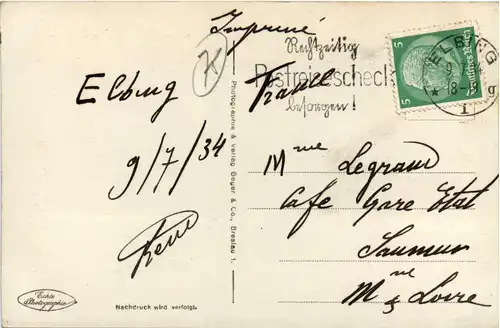 Imprimé
Elbing
9/7/34
Echte
Photographie
Nachdruck wird verfolgt.
Photographie & Verlag Geyer & Co., Breslau 1.
Rechtzeitig
Postreisescheck
besorgen!
5
5
Deutsches Reich
ELBING
1
Mme Legrand
Cafe Gare Etat
Saumur
M ne & Loire